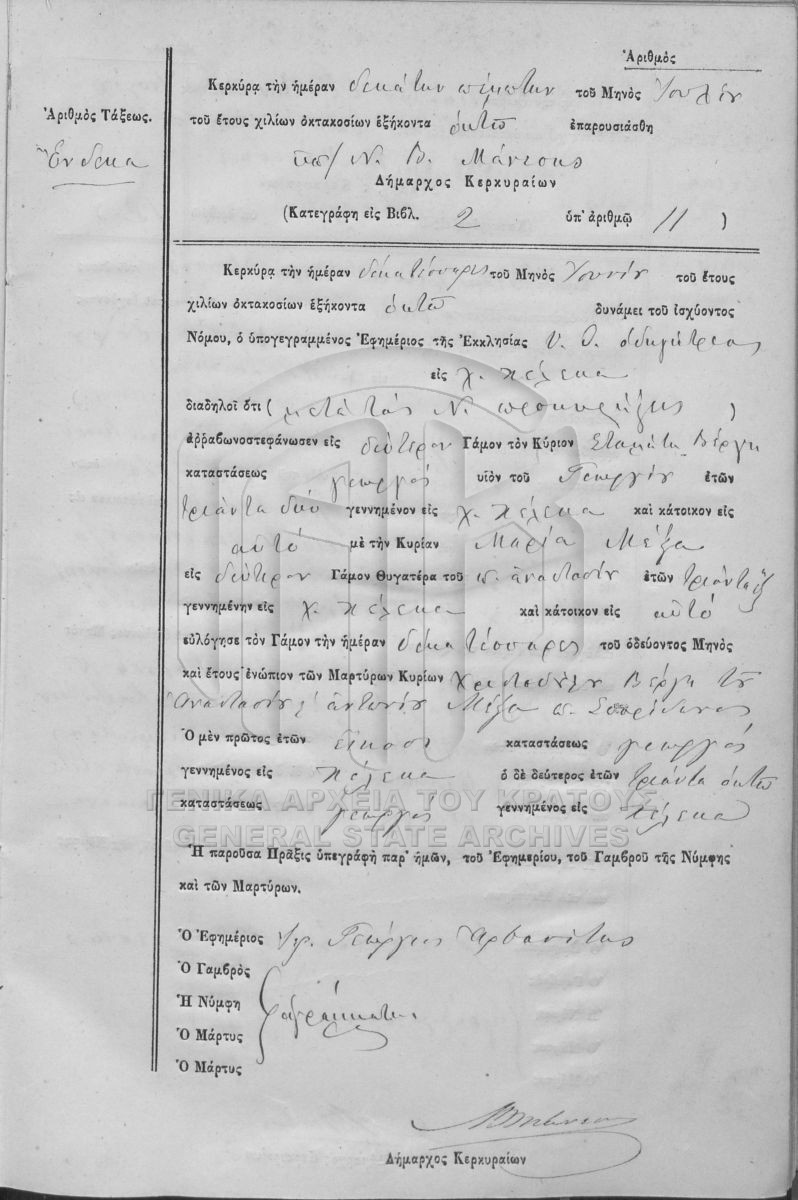 Ἀριθμὸς
Ἀριθμὸς Τάξεως.
Ἕνδεκα
Κερκύρᾳ τὴν ἡμέραν δεκάτην πέμπτην τοῦ Μηνὸς Ἰουλίου
τοῦ ἔτους χιλίων ὀκτακοσίων ἑξήκοντα ὀκτὼ ἐπαρουσιάσθη
Ν. Β. Μάνεσης
Δήμαρχος Κερκυραίων
(Κατεγράφη εἰς Βιβλ. 2 ὑπ' ἀριθμῷ 11 )
Κερκύρᾳ τὴν ἡμέραν δεκατέσσαρες τοῦ Μηνὸς Ἰουνίου τοῦ ἔτους
χιλίων ὀκτακοσίων ἑξήκοντα ὀκτὼ δυνάμει τοῦ ἰσχύοντος
Νόμου, ὁ ὑπογεγραμμένος Ἐφημέριος τῆς Ἐκκλησίας Υ. Θ. ὁδηγήτριας
εἰς χ. Πέλεκα
διαδηλοῖ ὅτι ( μετὰ τὰς Ν. προκηρύξεις )
ἀῤῥαβωνοστεφάνωσεν εἰς δεύτερον Γάμον τὸν Κύριον Σταμάτη Βέργη
καταστάσεως γεωργός υἱὸν τοῦ Γεωργίου ἐτῶν
τριάντα δύο γεννημένον εἰς χ. Πέλεκα καὶ κάτοικον εἰς
αὐτό μὲ τὴν Κυρίαν Μαρία Μέξα
εἰς δεύτερον Γάμον Θυγατέρα τοῦ π. ἀναστασίου ἐτῶν τριάντα ἕξ
γεννημένην εἰς χ. Πέλεκα καὶ κάτοικον εἰς αὐτό
εὐλόγησε τὸν Γάμον τὴν ἡμέραν δεκατέσσαρες τοῦ ὁδεύοντος Μηνὸς
καὶ ἔτους ἐνώπιον τῶν Μαρτύρων Κυρίων Χριστοδούλου Βέργη τοῦ
Ἀναστασίου ἀντωνίου Μέξα π. Σπυρίδωνος
Ὁ μὲν πρῶτος ἐτῶν εἴκοσι καταστάσεως γεωργός
γεννημένος εἰς Πέλεκα ὁ δὲ δεύτερος ἐτῶν τριάντα ὀκτὼ
καταστάσεως γεωργός γεννημένος εἰς Πέλεκα
ΓΕΝΙΚΑ ΑΡΧΕΙΑ ΤΟΥ ΚΡΑΤΟΥΣ
GENERAL STATE ARCHIVES
Ἡ παροῦσα Πρᾶξις ὑπεγράφη παρ' ἡμῶν, τοῦ Ἐφημερίου, τοῦ Γαμβροῦ τῆς Νύμφης
καὶ τῶν Μαρτύρων.
Ὁ Ἐφημέριος Γεώργιος Ἀρβανίτης
Ὁ Γαμβρὸς
Ἡ Νύμφη ἀγράμματοι
Ὁ Μάρτυς
Ὁ Μάρτυς
Δήμαρχος Κερκυραίων